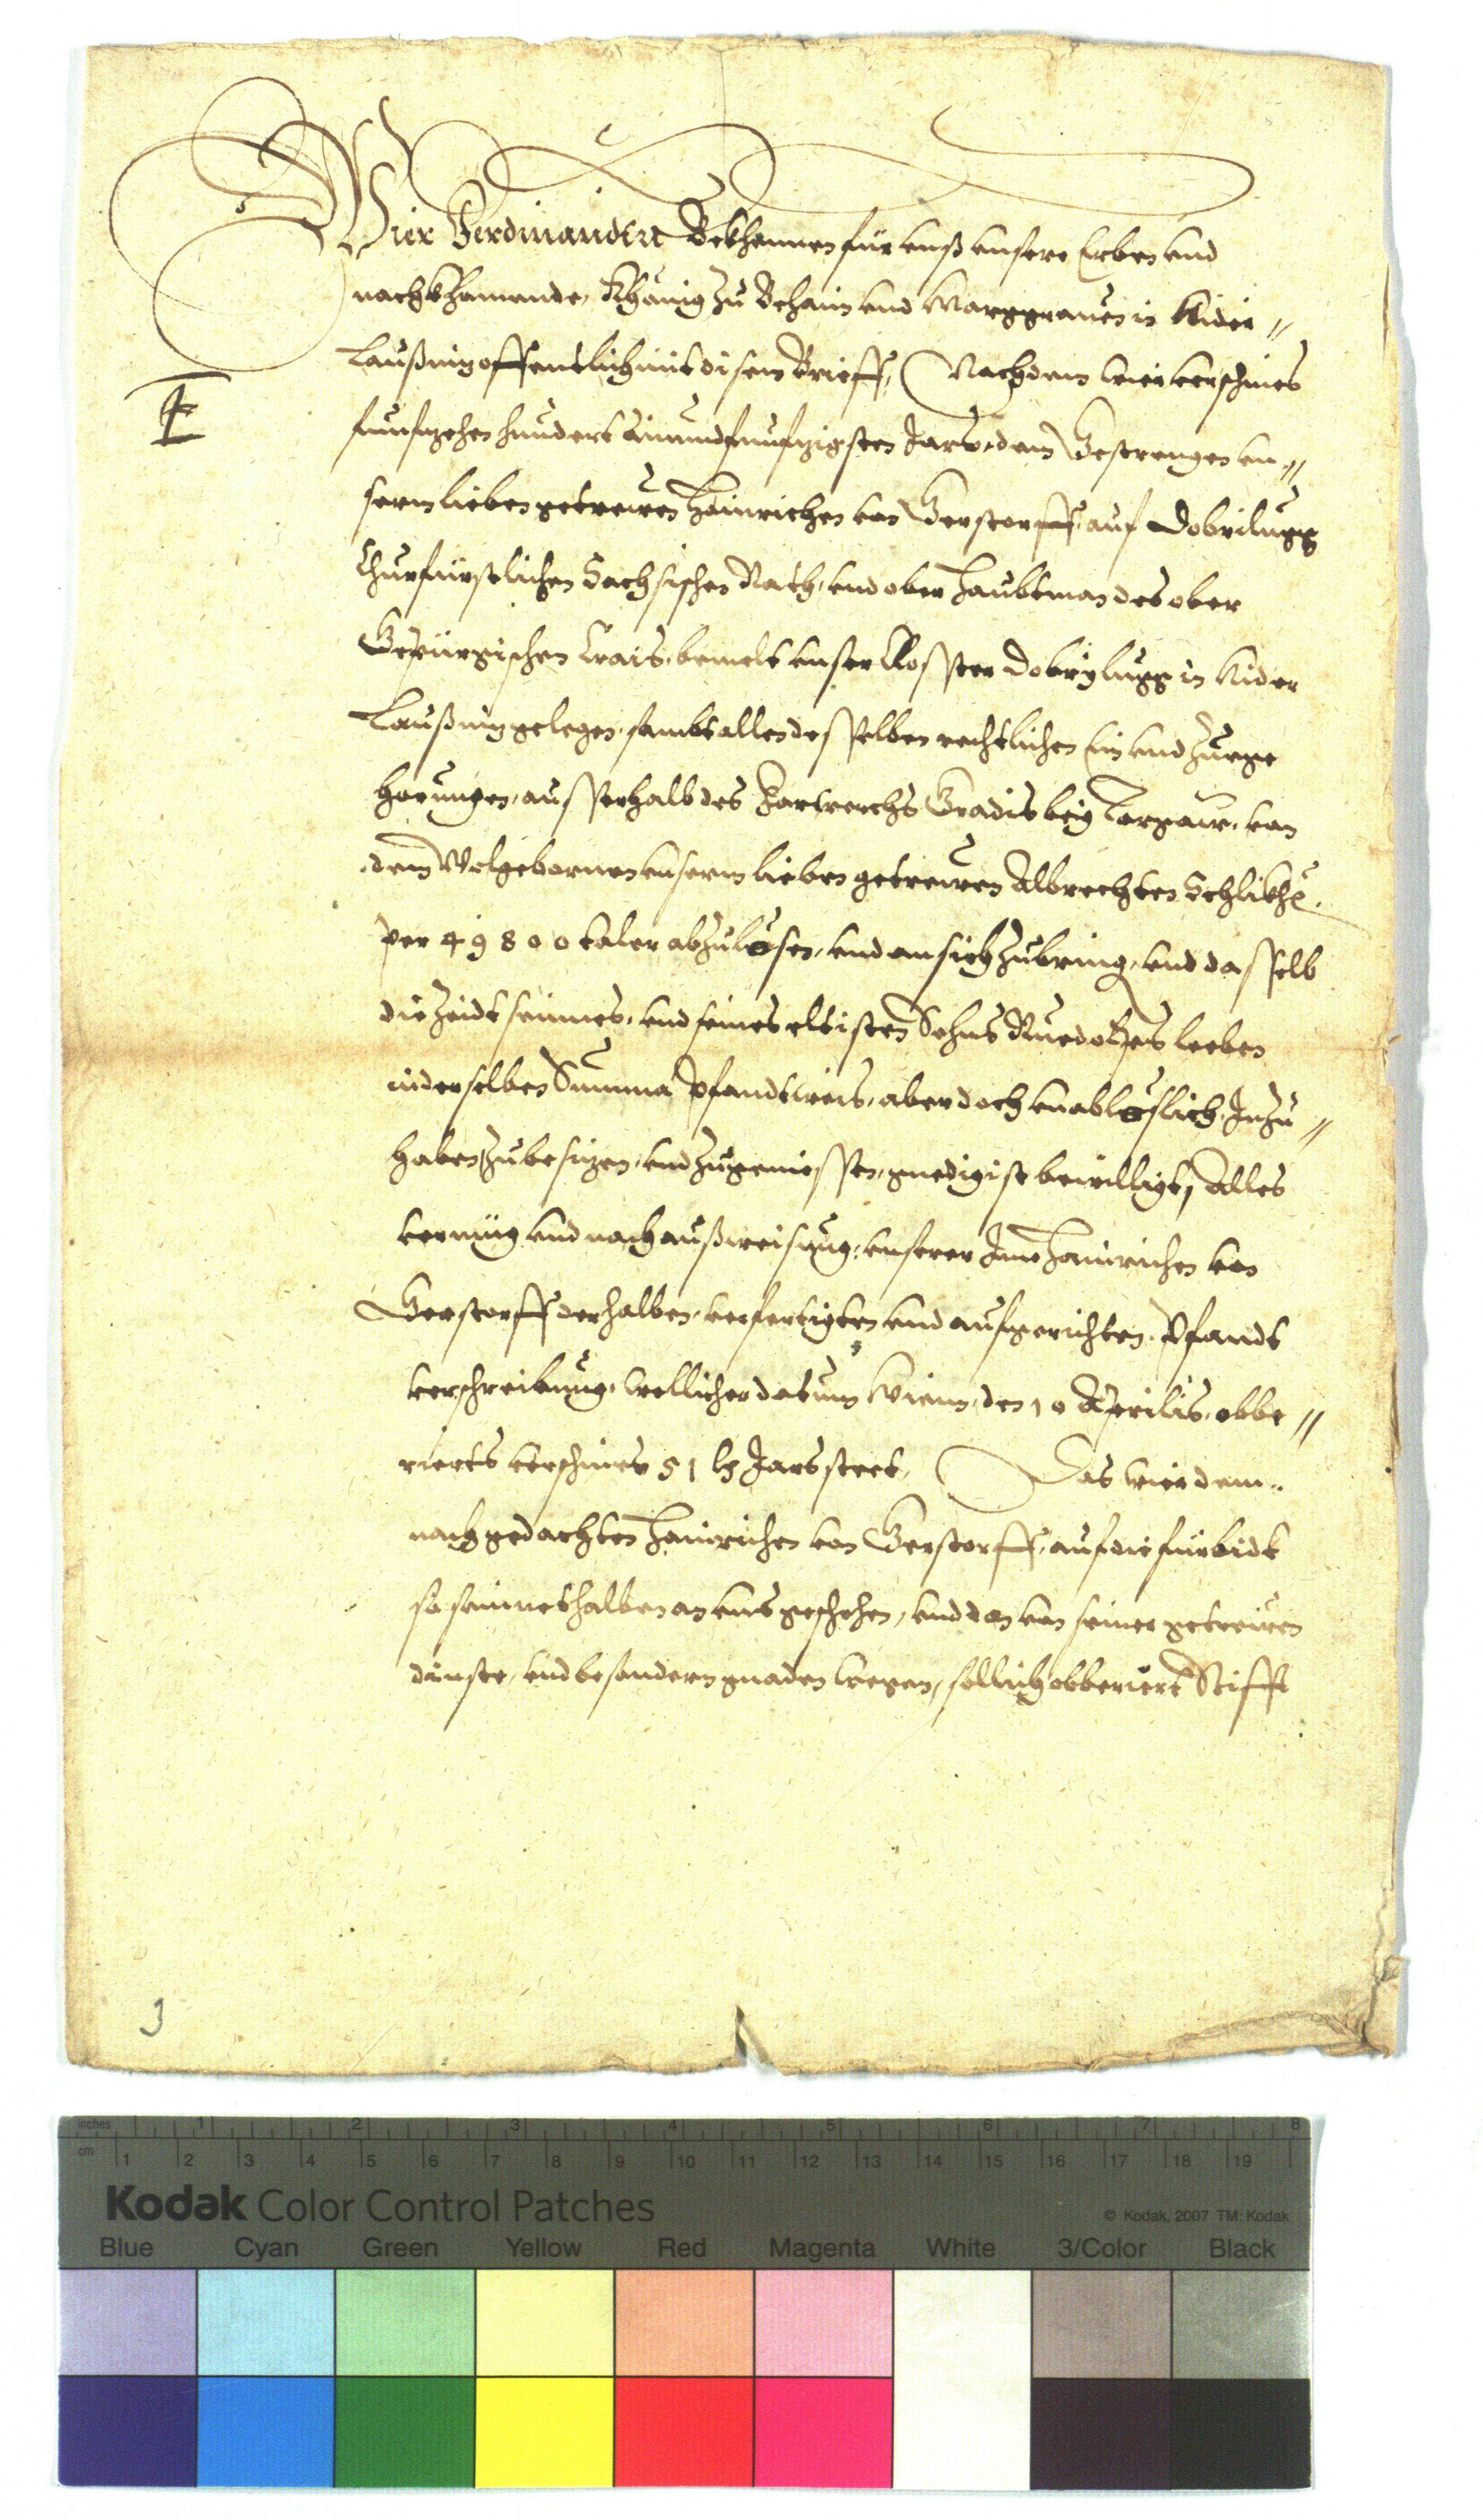 Wier Ferdinanden Bekhennen für unß unsere Erben und
nachkhomende, Khünig zu Behaim und Marggrauen in Nider //
Laußnitz offentlich mit disem Brieff, Nachdem wier verschines
funfzehenhundert ainundfunfzigsten Jars, dem Gestrengen un //
serm lieben getrewen Hainrichen von Gerstorff, auf Dobrilugg
Churfürstlichen Sachsischen Rath, und ober Haubtman des ober
Gepürgischen Crais, bemelt unser Closster Dobrylugg in Nider
Laußnitz gelegen, sambt allen desselben rechtlichen Ein und Zuege
horungen, ausserhalb des Forwerchs Gradis beÿ Torgaw, von
dem Wolgebornen unserm lieben getrewen Albrechten Schlikhen
per 49800 taler abzulösen, und an sich zubring, und dasselb
die Zeidt seinnes, und seines eltisten Sohns Ruedolfen leeben
in derselben Summa Pfandtweis, aber doch unablöslich, Inzu //
haben, zubesizen, und zugeniessen, gnedigist bewilligt, Alles
vermüg und nach außweisung, unserer Ime Hainrichen von
Gerstorff derhalben, verfertigten und aufgerichten, Pfandt
verschreibung, wellicher datum Wienn, den 10 Aprilis, obbe //
rierts verschines 51 ls Jars steet, Das wier dem..
nach gedachten Hainrichen von Gerstorff, auf die fürbidt
so seinnethalben an uns geschehen, und dan von seiner getreuen
dinste, und besondern gnaden wegen, sollich obberüert Stifft
3
inches 1 2 3 4 5 6 7 8
cm 1 2 3 4 5 6 7 8 9 10 11 12 13 14 15 16 17 18 19
Kodak Color Control Patches © Kodak, 2007 TM: Kodak
Blue Cyan Green Yellow Red Magenta White 3/Color Black